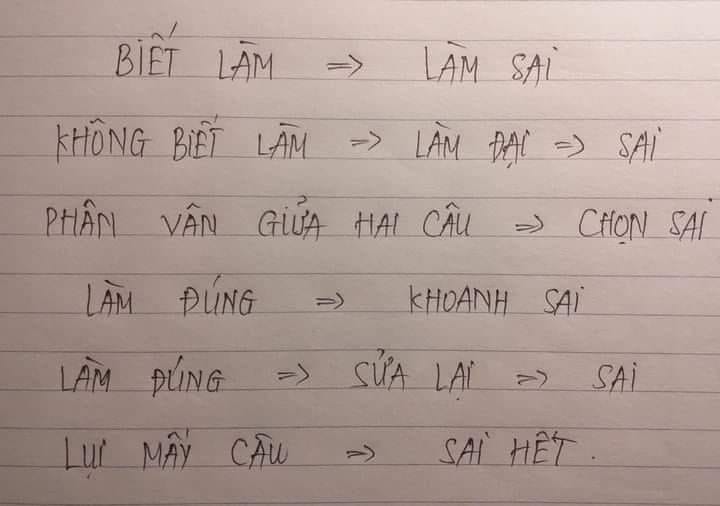 BIẾT LÀM => LÀM SAI
KHÔNG BIẾT LÀM => LÀM ĐẠI => SAI
PHÂN VÂN GIỮA HAI CÂU => CHỌN SAI
LÀM ĐÚNG => KHOANH SAI
LÀM ĐÚNG => SỬA LẠI => SAI
LỤI MẤY CÂU => SAI HẾT.